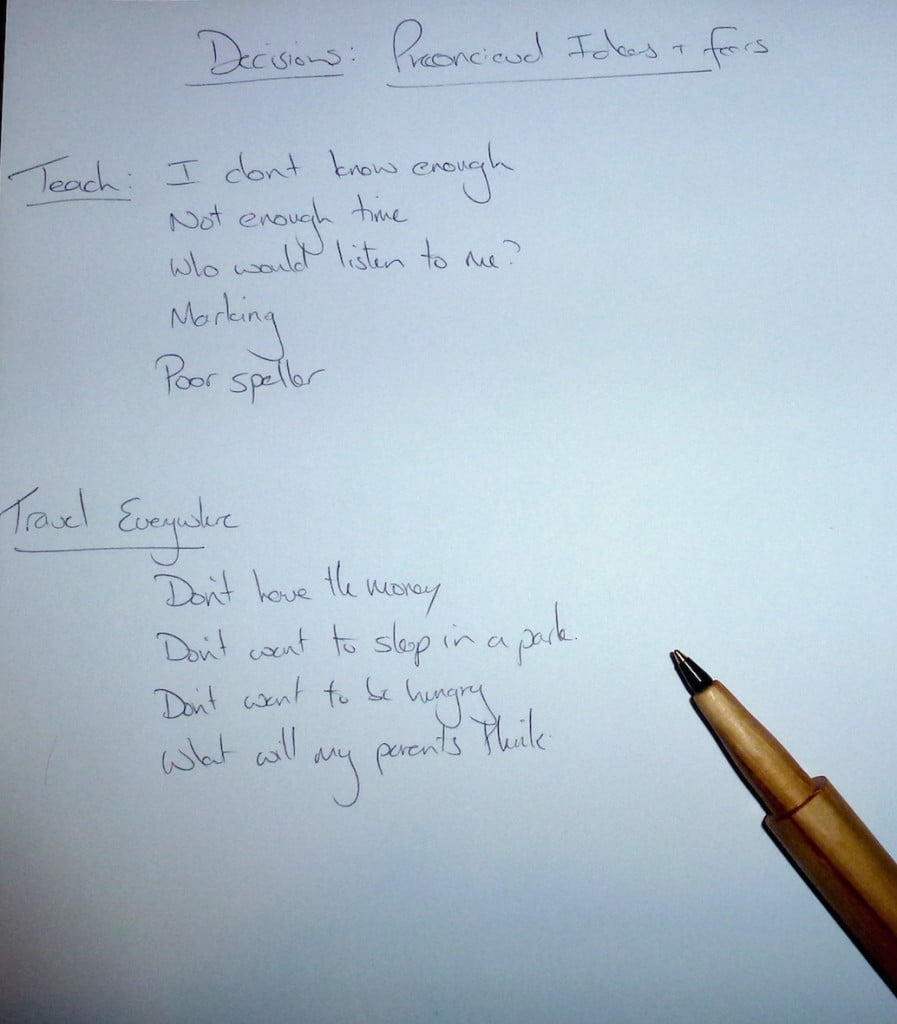 Decisions: Preconcieved Ideas + fears
Teach: I dont know enough
Not enough time
Who would listen to me?
Marking
Poor speller
Travel Everywhere
Don't have the money
Don't want to sleep in a park.
Don't want to be hungry
What will my parents think.